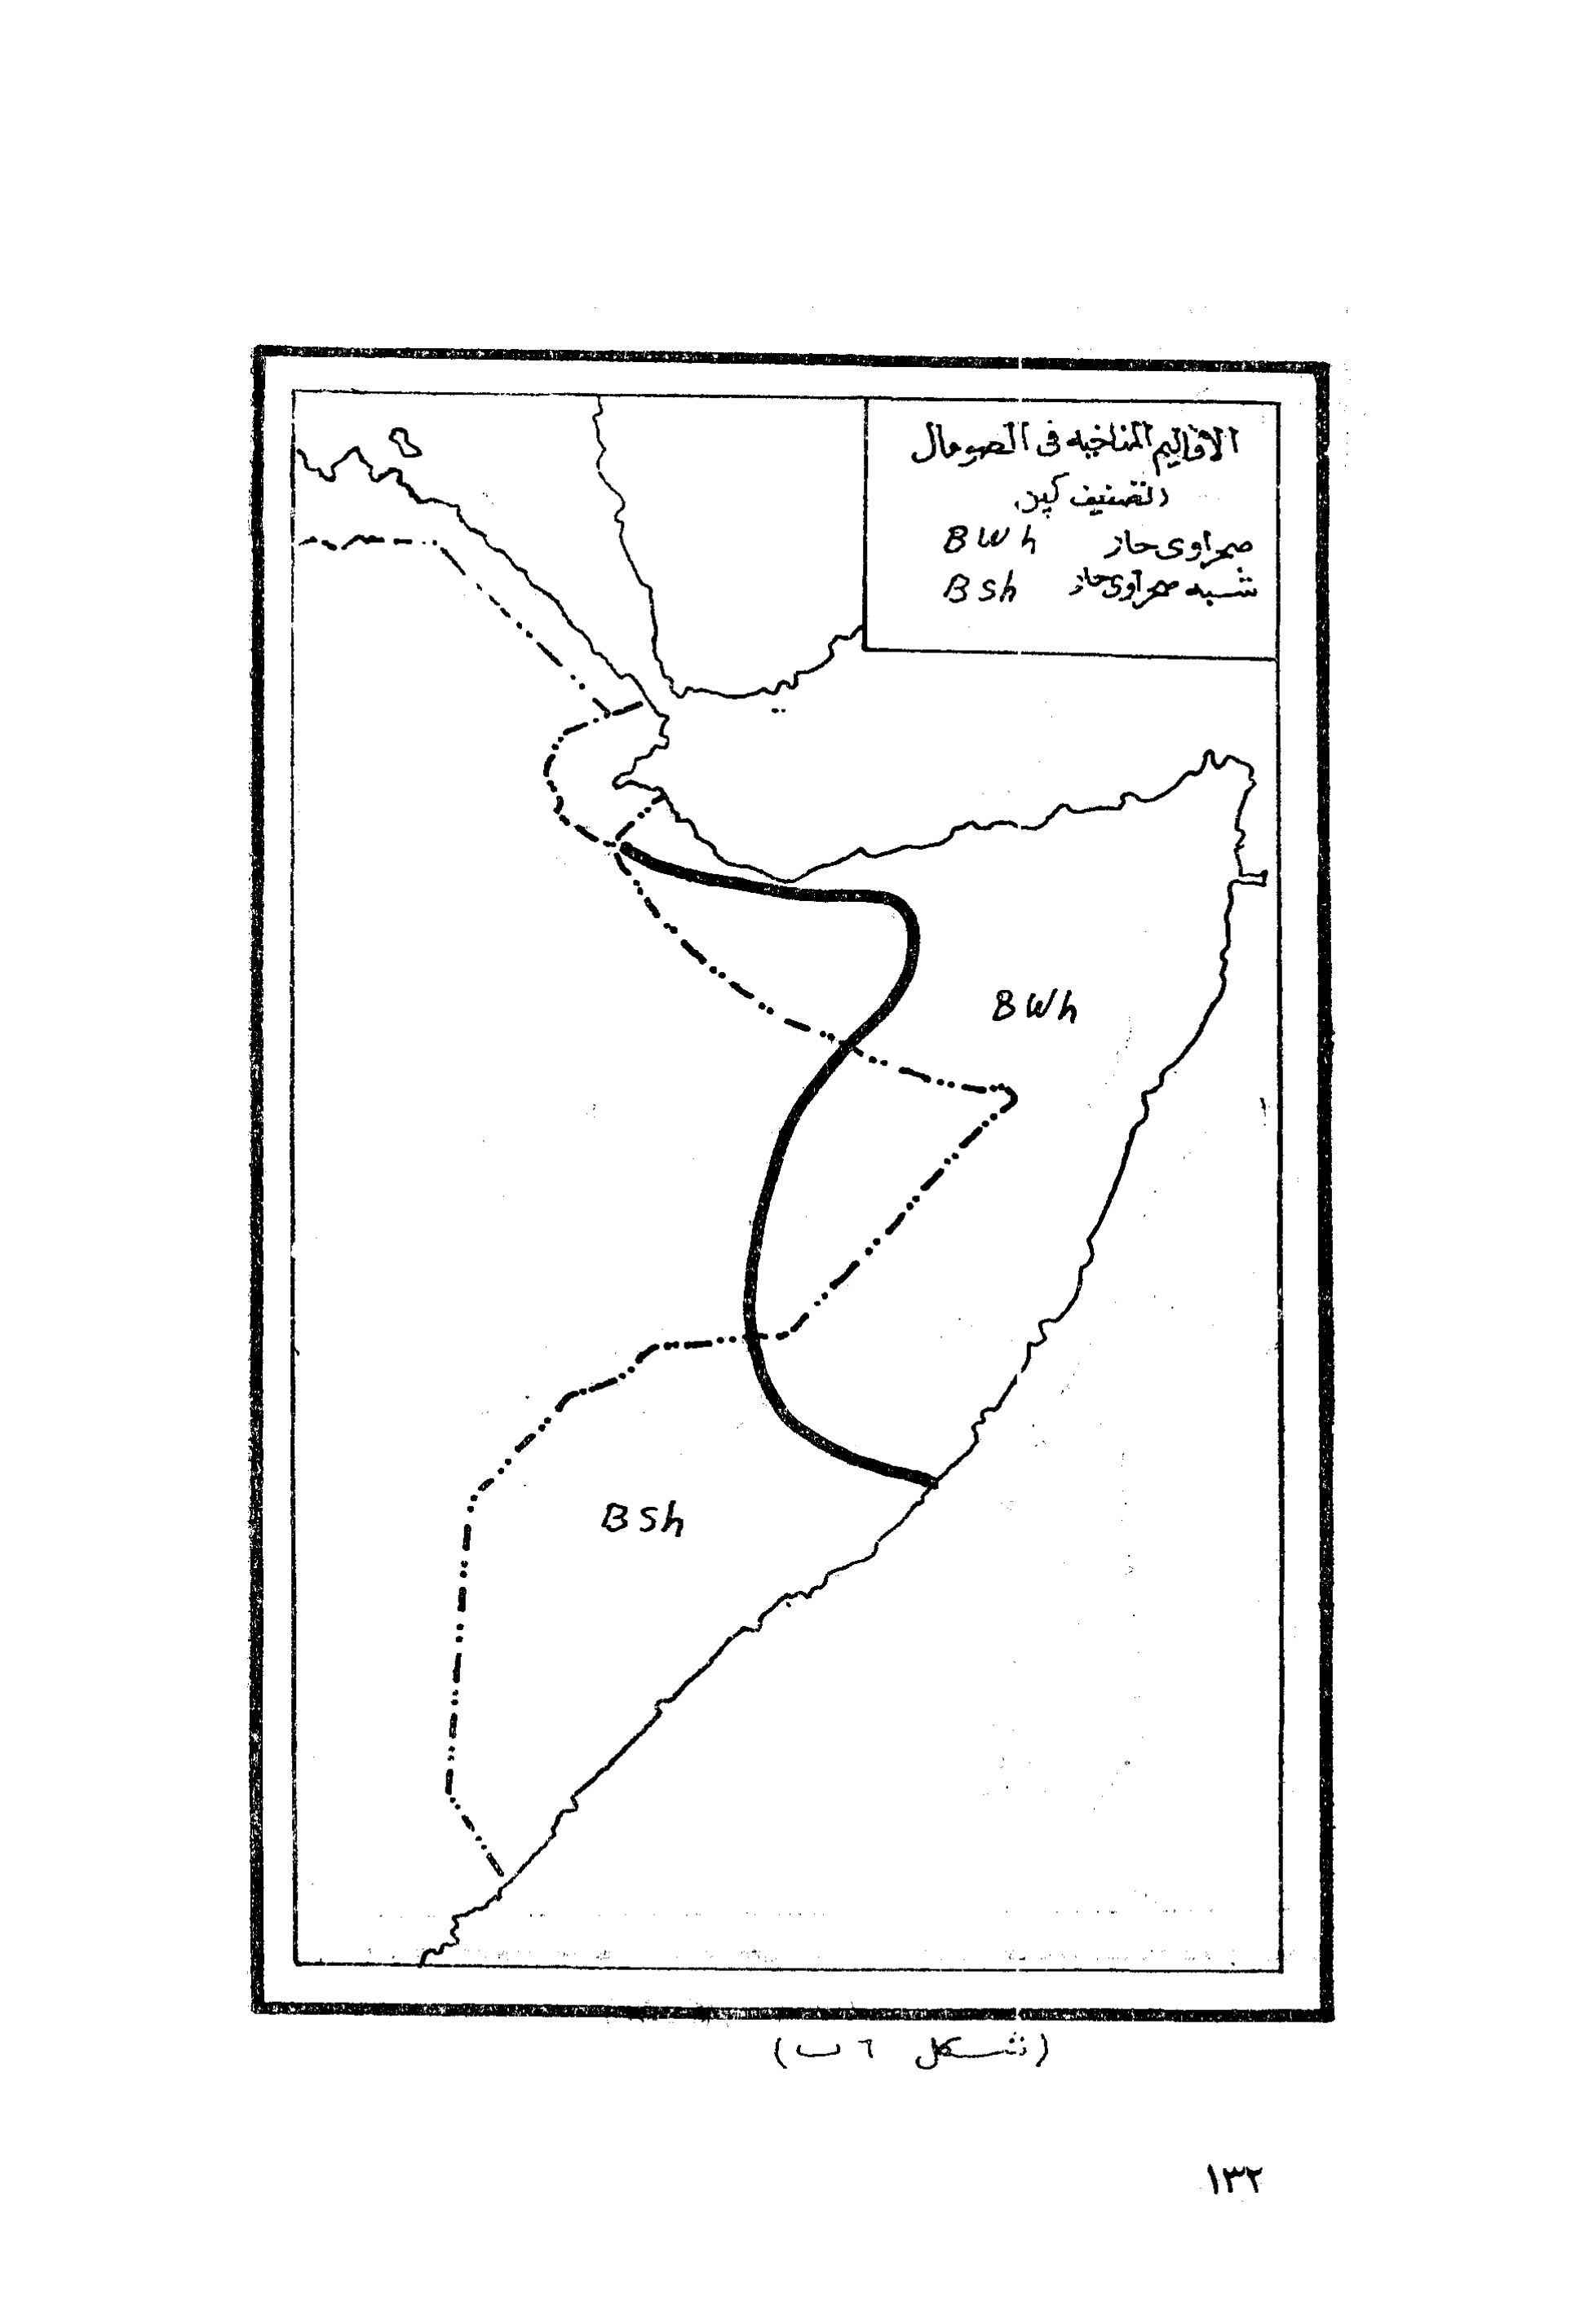 الاقاليم المناخيه فى الصومال
(تصنيف كپن)
صحراوى حار BWh
شبه صحراوى حار BSh
BWh
BSh
(شكل ٦ ب)
١٣٢